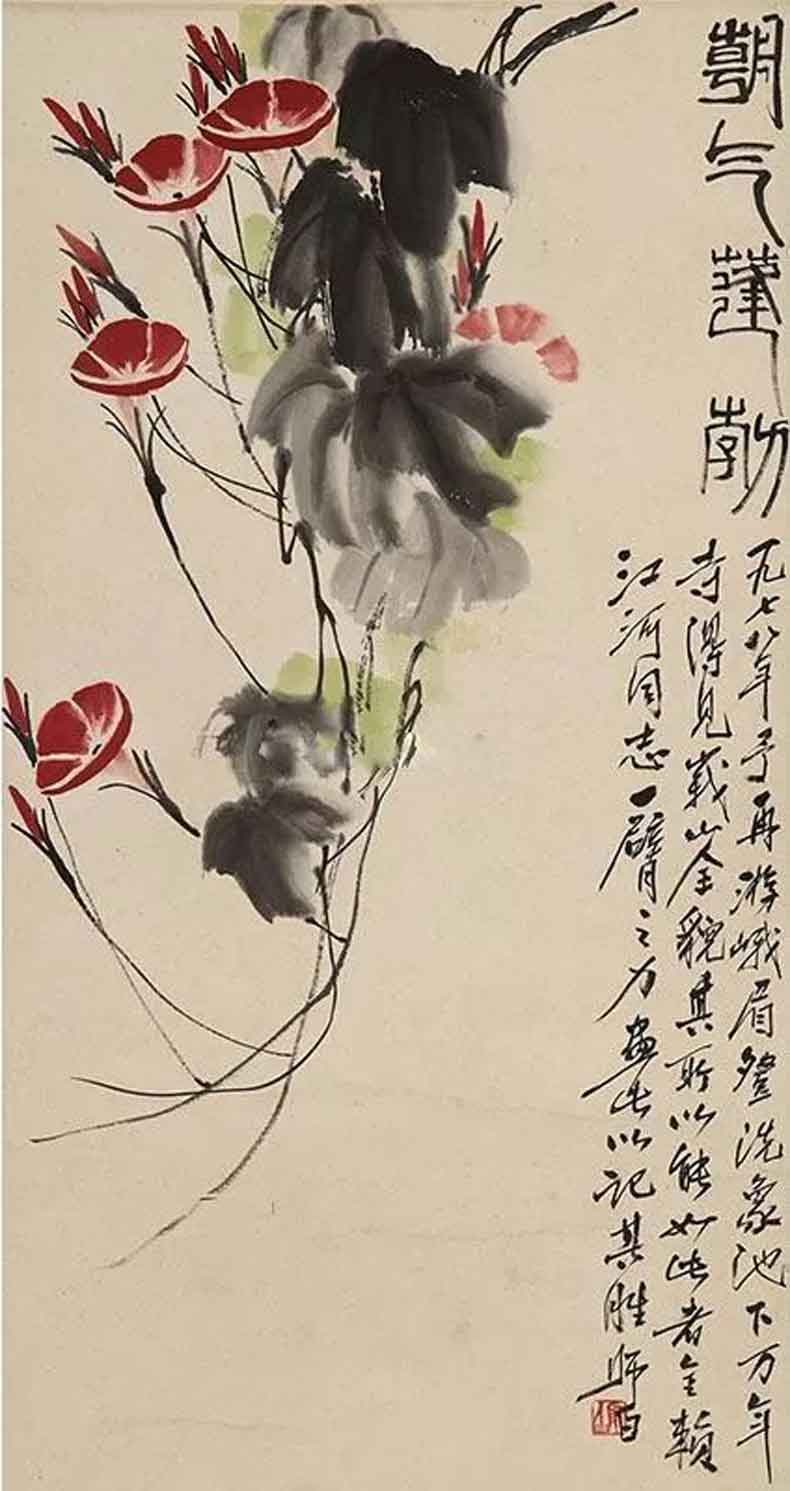 朝气蓬勃
一九七八年予再游峨眉登洗象池下万年
寺得见峩山全貌其所以能如此者全赖
江河同志一臂之力画此以记其胜师白